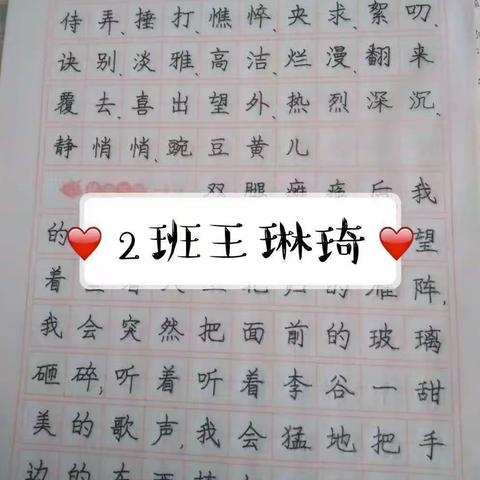 侍弄、捶打、憔悴、央求、絮叨、
诀别、淡雅、高洁、烂漫、翻来
覆去、喜出望外、热烈深沉、
静悄悄、豌豆黄儿
双腿瘫痪后,我
的 望
2班王琳琦
着 的雁阵,
我会突然把面前的玻璃
砸碎;听着听着李谷一甜
美的歌声,我会猛地把手
边的东西